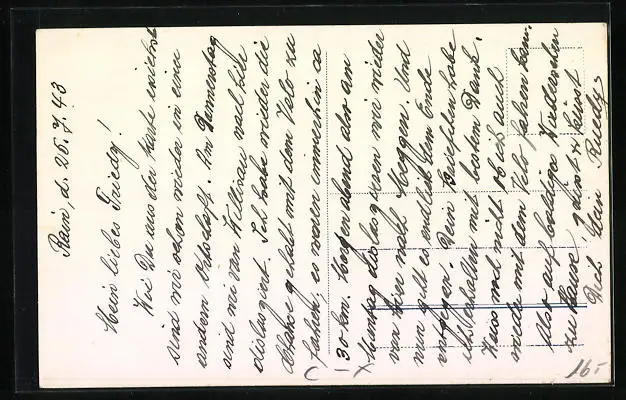 Rain, d. 25.7.43
Mein liebes Friedy!
Wie Du aus der Karte ersiehst
sind wir schon wieder in einer
andern Ortschaft. Am Donnerstag
sind wir von Willisau nach hier
disloziert. Ich habe wieder die
gehabt mit dem Velo zu
fahren, es waren immerhin ca
30 km. Morgen abend also am
Montag dislozieren wir wieder
von hier nach Meggen. Und
nun geht es endlich dem Ende
entgegen. Dein Brieflein habe
ich erhalten mit bestem Dank.
Weiss noch nicht ob ich auch
wieder mit dem Velo fahren kann.
Also auf baldiges Wiedersehen
zu Hause! grüsst & küsst
Dich Dein Ruedy
16.-